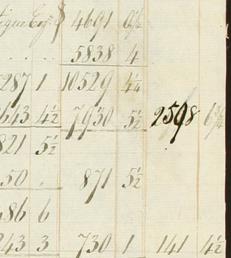 $ 4691 6½
5838 4
287 1 10529 4¼
643 4½ 7930 5½ 2598 6¾
821 5½
50 . 871 5½
486 6
243 3 730 1 141 4½